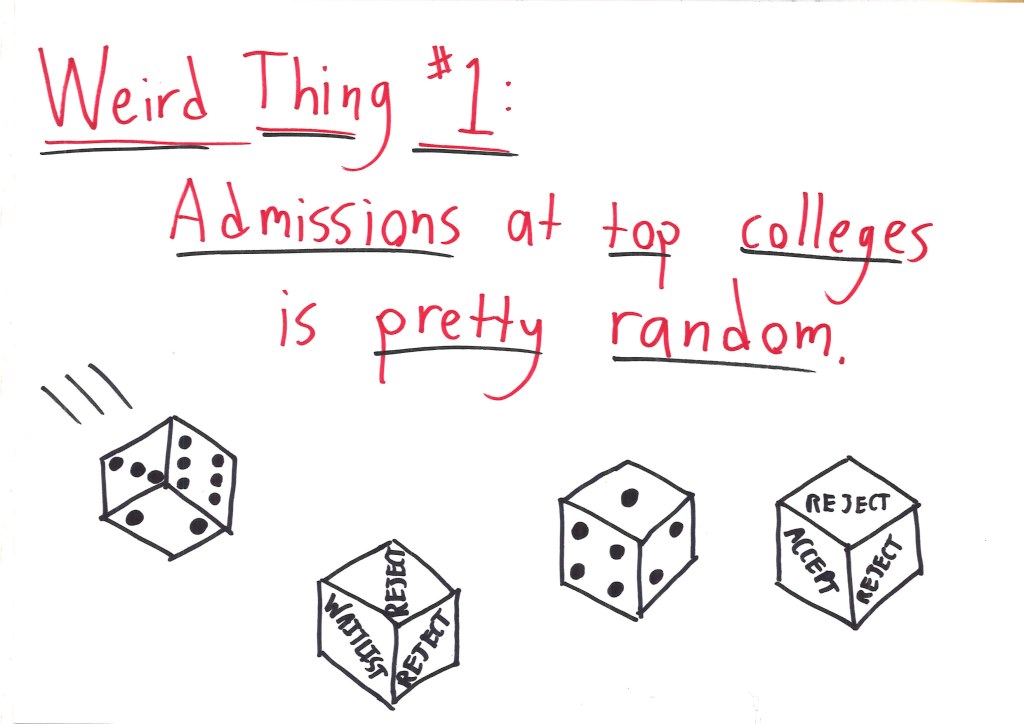 Weird Thing #1:
Admissions at top colleges
is pretty random.
REJECT
WAITLIST
REJECT
REJECT
ACCEPT
REJECT